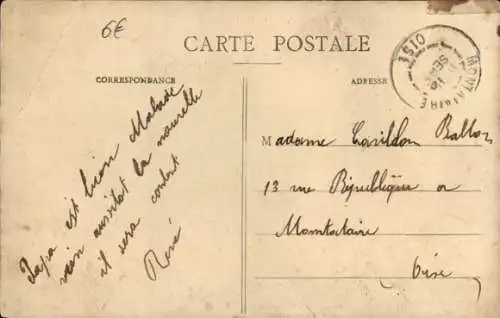 6€
CARTE POSTALE
CORRESPONDANCE
ADRESSE
MONTATAIRE OISE
SEPT
Papa est bien Malade
vien aussitot la nouvelle
il sera contant
René
Madame Casildon Ballon
13 rue République a
Montataire
Oise